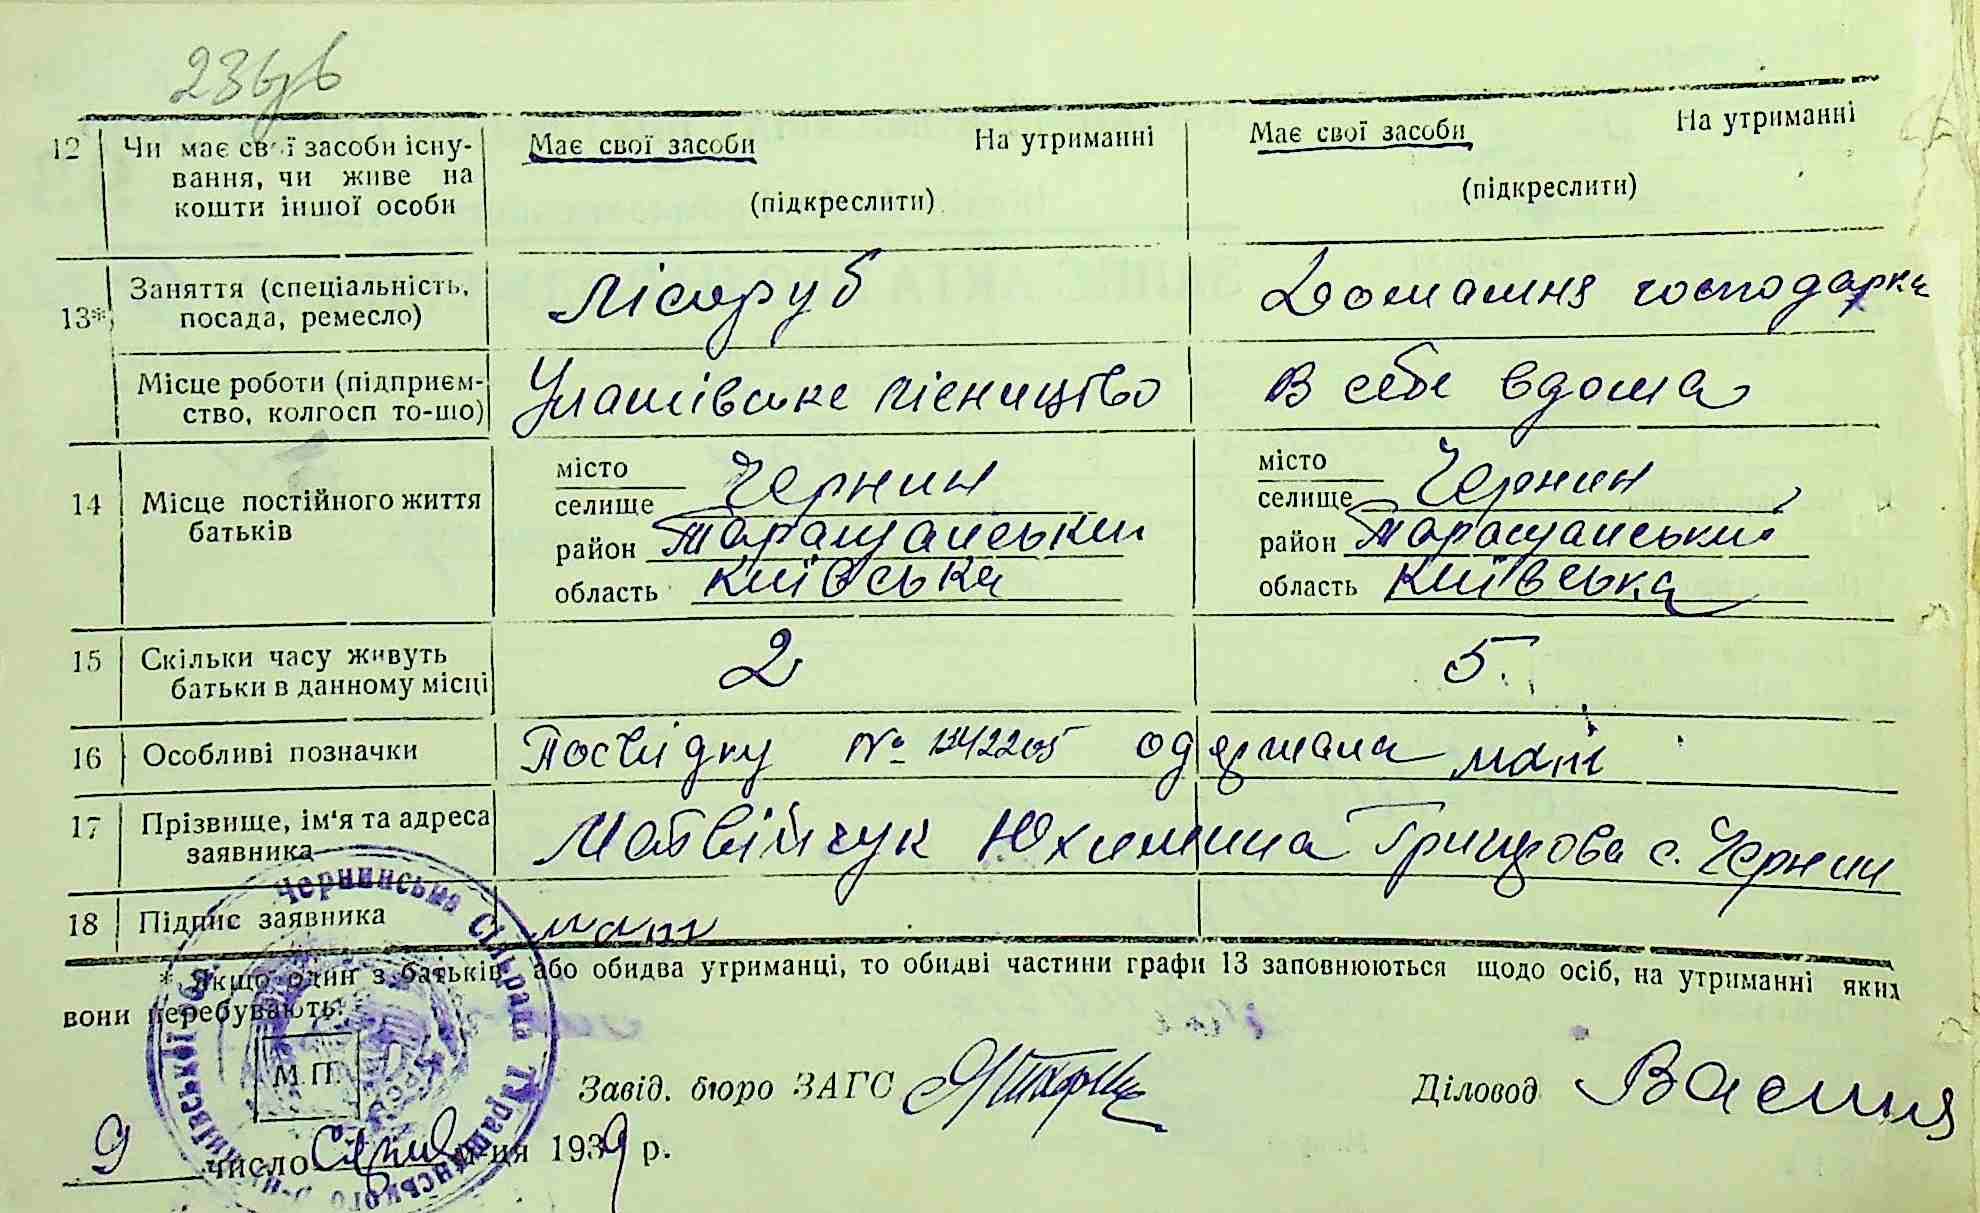 12 Чи має свої засоби існу- Має свої засоби На утриманні Має свої засоби На утриманні
вання, чи живе на
кошти іншої особи (підкреслити) (підкреслити)
13* Заняття (спеціальність, Лісоруб Домашня господарка
посада, ремесло)
Місце роботи (підприєм- лісництво В себе вдома
ство, колгосп то-що)
14 Місце постійного життя місто Чернин місто Чернин
батьків селище селище
район Таращанський район Таращанський
область Київська область Київська
15 Скільки часу живуть 2 5.
батьки в данному місці
16 Особливі позначки Посвідку № одержала мати
17 Прізвище, ім'я та адреса Матвійчук Юхимина с. Чернин
заявника
18 Підпис заявника мати
* Якщо один з батьків або обидва утриманці, то обидві частини графи 13 заповнюються щодо осіб, на утриманні яких
вони перебувають.
Чернинська Сільрада Таращанського р-ну Київської обл.
М.П.
Завід. бюро ЗАГС Діловод
9 число місяця 1939 р.